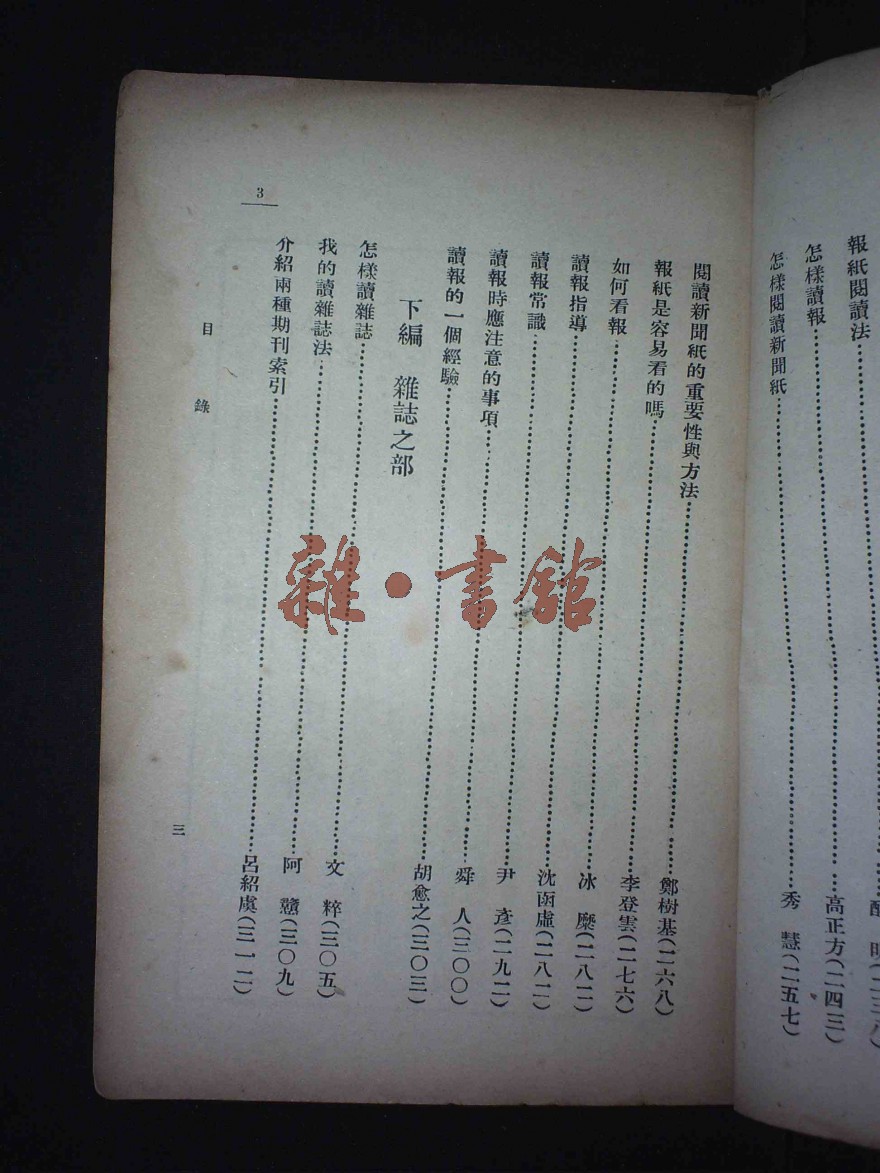 報紙閱讀法……………………
怎樣讀報……………………高正方(二四三)
怎樣閱讀新聞紙……………………秀　慧(二五七)
閱讀新聞紙的重要性與方法……………………鄭樹基(二六八)
報紙是容易看的嗎……………………李登雲(二七六)
如何看報……………………冰　糜(二八二)
讀報指導……………………沈函虛(二八二)
讀報常識……………………尹　彥(二九二)
讀報時應注意的事項……………………舜　人(三〇〇)
讀報的一個經驗……………………胡愈之(三〇三)
下編　雜誌之部
怎樣讀雜誌……………………文　粹(三〇五)
我的讀雜誌法……………………阿　戇(三〇九)
介紹兩種期刊索引……………………呂紹虞(三一二)
3
目　錄
三
雜·書館